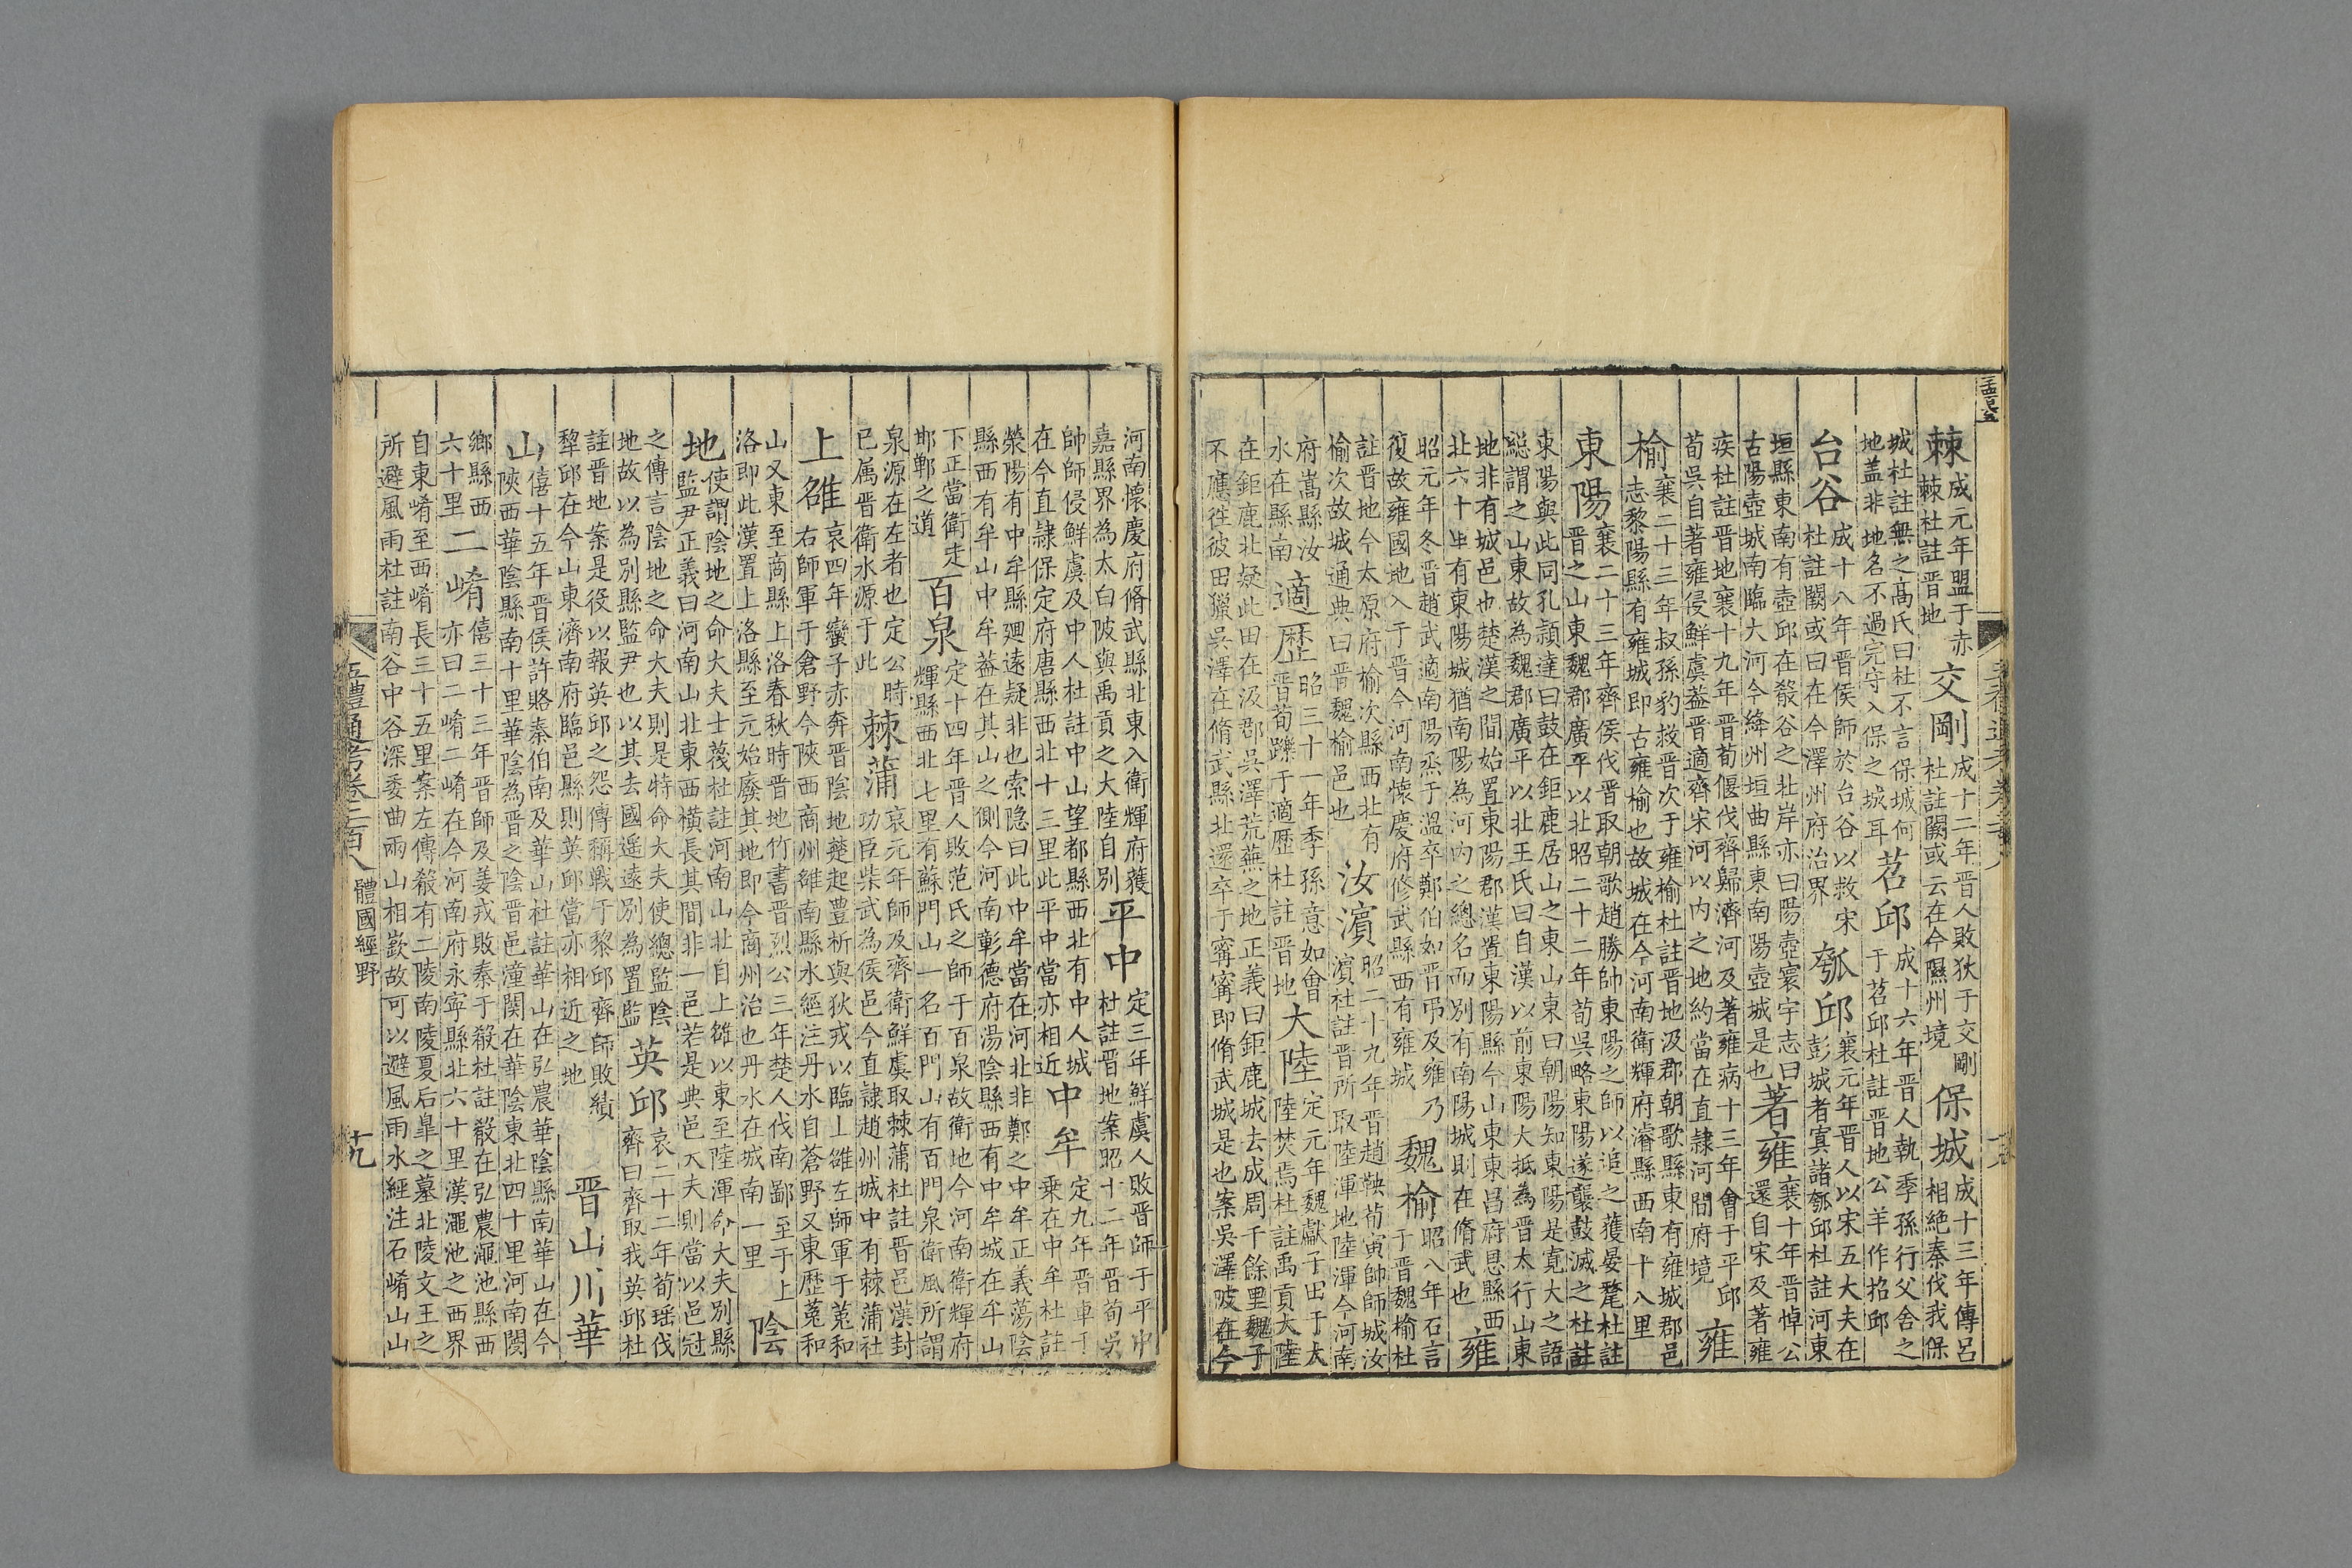 棘成元年盟于赤
棘杜註晉地
交剛成十二年晉人敗狄于交剛
杜註闕或云在今隰州境
保城成十三年傳呂
相絶秦伐我保
城杜註無之高氏曰杜不言保城何
地盖非地名不過完守入保之城耳
苕邱成十六年晉人執季孫行父舍之
于苕邱杜註晉地公羊作招邱
台谷成十八年晉侯師於台谷以救宋
杜註闕或曰在今澤州府治界
瓠邱襄元年晉人以宋五大夫在
彭城者寘諸瓠邱杜註河東
垣縣東南有壺邱在殽谷之北岸亦曰陽壺寰宇志曰
古陽壺城南臨大河今絳州垣曲縣東南陽壺城是也
著雍襄十年晉悼公
還自宋及著雍
疾杜註晉地襄十九年晉荀偃伐齊歸濟河及著雍病十三年會于平邱
荀吳自著雍侵鮮虞葢晉適齊宋河以内之地約當在直隷河間府境
雍
榆襄二十三年叔孫豹救晉次于雍榆杜註晉地汲郡朝歌縣東有雍城郡邑
志黎陽縣有雍城即古雍榆也故城在今河南衛輝府濬縣西南十八里
東陽襄二十三年齊侯伐晉取朝歌趙勝帥東陽之師以追之獲晏氂杜註
晉之山東魏郡廣平以北昭二十二年荀吳略東陽遂襲鼓滅之杜註
東陽與此同孔頴達曰鼓在鉅鹿居山之東山東曰朝陽知東陽是寛大之語
緫謂之山東故為魏郡廣平以北王氏曰自漢以前東陽大抵為晉太行山東
地非有城邑也楚漢之間始置東陽郡漢置東陽縣今山東東昌府恩縣西
北六十里有東陽城猶南陽為河内之總名而別有南陽城則在脩武也
雍
昭元年冬晉趙武適南陽烝于溫卒鄭伯如晉弔及雍乃
復故雍國地入于晉今河南懷慶府修武縣西有雍城
魏榆昭八年石言
于晉魏榆杜
註晉地今太原府榆次縣西北有
榆次故城通典曰晉魏榆邑也
汝濵昭二十九年晉趙鞅荀寅帥師城汝
濵杜註晉所取陸渾地陸渾今河南
府嵩縣汝
水在縣南
適歷昭三十一年季孫意如會
晉荀躒于適歷杜註晉地
大陸定元年魏獻子田于大
陸焚焉杜註禹貢大陸
在鉅鹿北疑此田在汲郡吳澤荒蕪之地正義曰鉅鹿城去成周千餘里魏子
不應徃彼田獵吳澤在脩武縣北還卒于寗寗即脩武城是也案吳澤陂在今
河南懷慶府脩武縣北東入衛輝府獲
嘉縣界為太白陂與禹貢之大陸自別
平中定三年鮮虞人敗晉師于平中
杜註晉地案昭十二年晉荀吳
帥師侵鮮虞及中人杜註中山望都縣西北有中人城
在今直隷保定府唐縣西北十三里此平中當亦相近
中牟定九年晉車千
乗在中牟杜註
滎陽有中牟縣廻遠疑非也索隐曰此中牟當在河北非鄭之中牟正義蕩陰
縣西有牟山中牟葢在其山之側今河南彰德府湯陰縣西有中牟城在牟山
下正當衛走
邯鄲之道
百泉定十四年晉人敗范氏之師于百泉故衛地今河南衛輝府
輝縣西北七里有蘇門山一名百門山有百門泉衛風所謂
泉源在左者也定公時
已属晉衛水源于此
棘蒲哀元年師及齊衛鮮虞取棘蒲杜註晉邑漢封
功臣柴武為侯邑今直隷趙州城中有棘蒲社
上雒哀四年蠻子赤奔晉陰地楚起豊析與狄戎以臨上雒左師軍于菟和
右師軍于倉野今陝西商州雒南縣水經注丹水自蒼野又東歷菟和
山又東至商縣上洛春秋時晉地竹書晉烈公三年楚人伐南鄙至于上
洛即此漢置上洛縣至元始廢其地即今商州治也丹水在城南一里
陰
地使謂陰地之命大夫士蔑杜註河南山北自上雒以東至陸渾命大夫別縣
監尹正義曰河南山北東西横長其間非一邑若是典邑大夫則當以邑冠
之傳言陰地之命大夫則是特命大夫使總監陰
地故以為別縣監尹也以其去國遥遠別為置監
英邱哀二十二年荀瑶伐
齊曰齊取我英邱杜
註晉地案是役以報英邱之怨傳稱戰于黎邱齊師敗績
犂邱在今山東濟南府臨邑縣則英邱當亦相近之地
晋山川華
山僖十五年晉侯許賂秦伯南及華山杜註華山在弘農華陰縣南華山在今
陝西華陰縣南十里華陰為晉之陰晉邑潼關在華陰東北四十里河南閿
鄉縣西
六十里
二崤僖三十三年晉師及姜戎敗秦于殽杜註殽在弘農澠池縣西
亦曰二崤二崤在今河南府永寧縣北六十里漢澠池之西界
自東崤至西崤長三十五里案左傳殽有二陵南陵夏后皐之墓北陵文王之
所避風雨杜註南谷中谷深委曲兩山相嶔故可以避風雨水經注石崤山山
五禮通考卷二百八
體國經野
十九